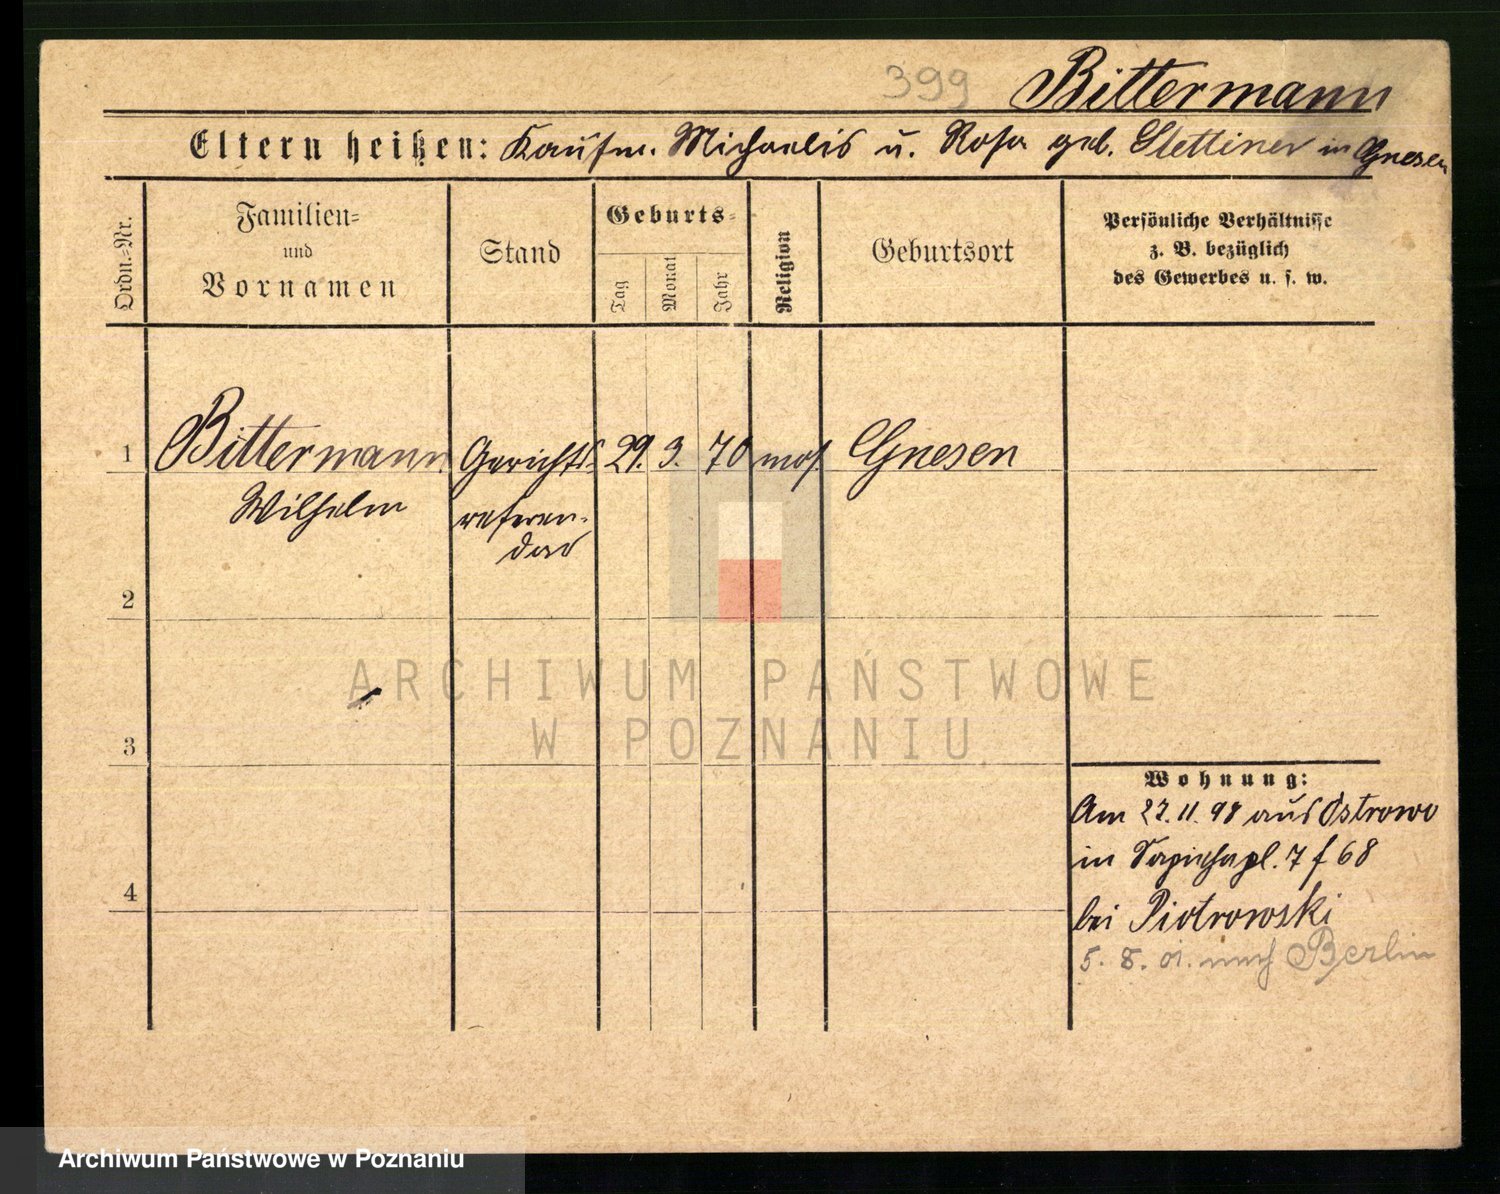 399 Bittermann
Eltern heißen: Kaufm. Michaelis u. Rosa geb. Stettiner in Gnesen
Ordn.-Nr.
Familien-
und
Vornamen
Stand
Geburts-
Tag
Monat
Jahr
Religion
Geburtsort
Persönliche Verhältnisse
z. B. bezüglich
des Gewerbes u. s. w.
1 Bittermann Gerichts 29. 3. 70 mos. Gnesen
Wilhelm referen-
dar
2
ARCHIWUM PAŃSTWOWE
W POZNANIU
3
Wohnung:
Am 27. 11. 98 aus Ostrowo
in Sapiehapl. 7 f 68
4
bei Piotrowski
5. 8. 01. nach Berlin
Archiwum Państwowe w Poznaniu